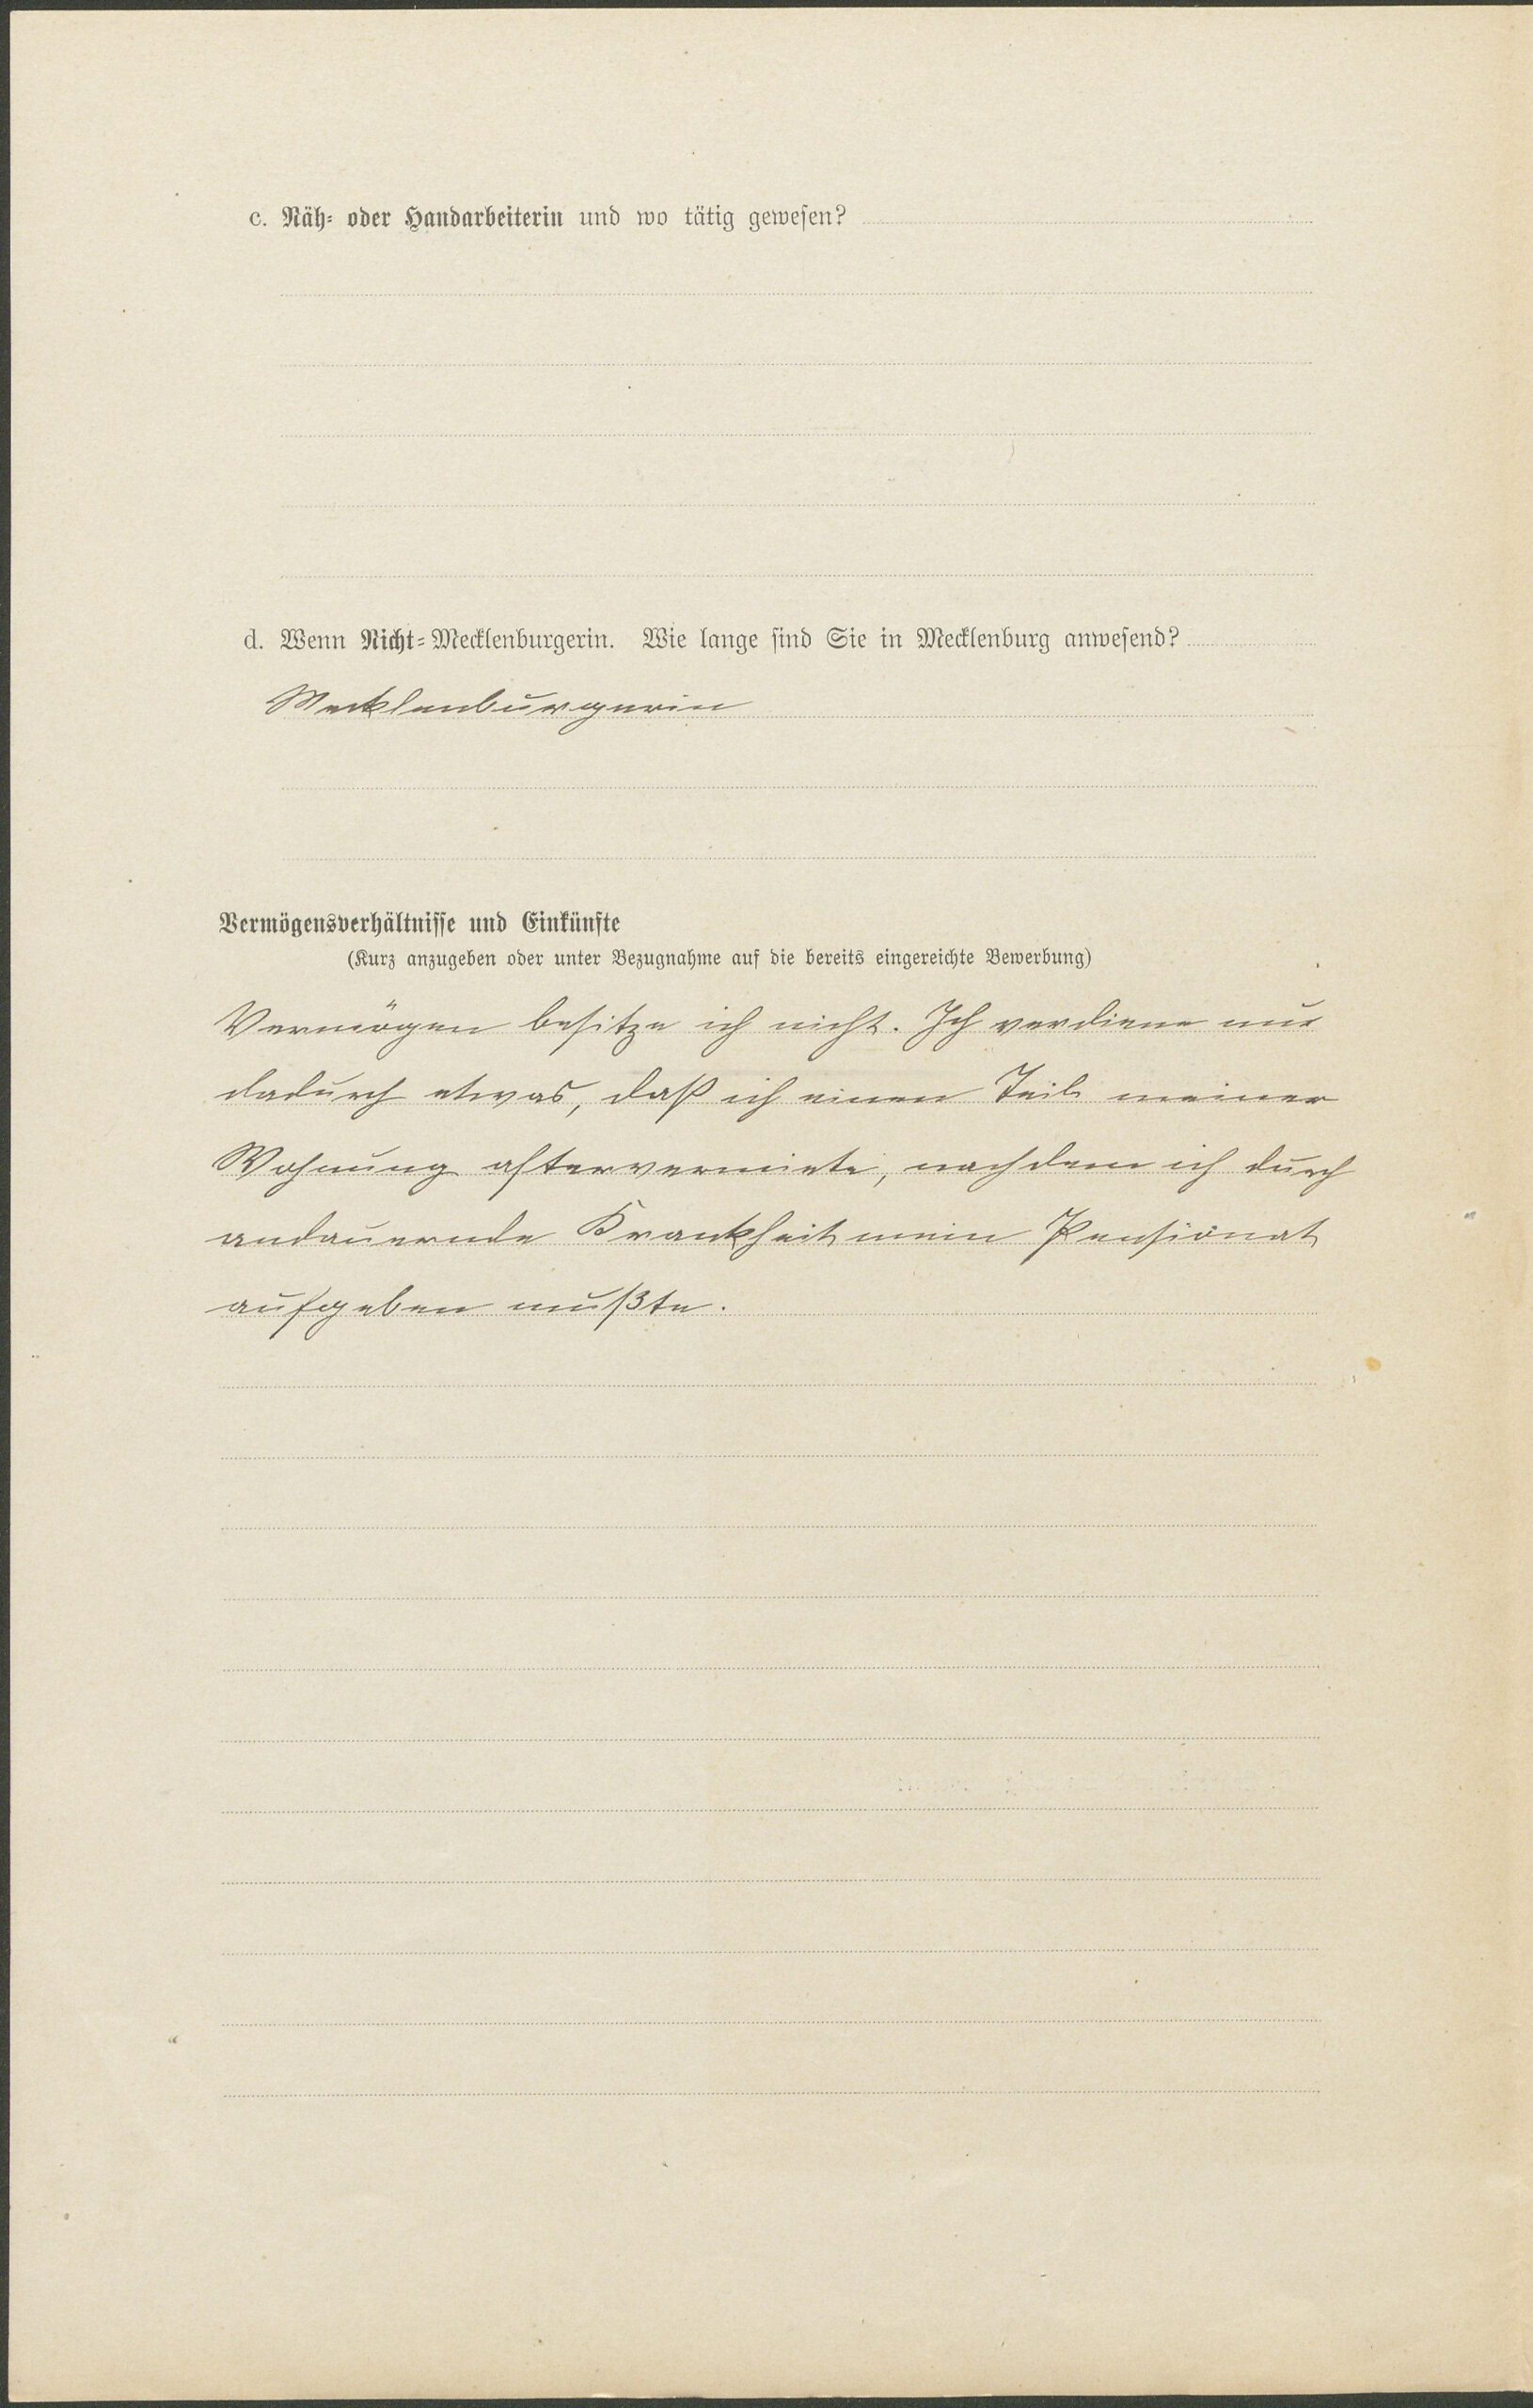 c. Näh- oder Handarbeiterin und wo tätig gewesen?
d. Wenn Nicht-Mecklenburgerin. Wie lange sind Sie in Mecklenburg anwesend?
Mecklenburgerin
Vermögensverhältnisse und Einkünfte
(Kurz anzugeben oder unter Bezugnahme auf die bereits eingereichte Bewerbung)
Vermögen besitze ich nicht. Ich verdiene nur
dadurch etwas, daß ich einen Teil meiner
Wohnung aftervermiete, nachdem ich durch
andauernde Krankheit mein Pensionat
aufgeben mußte.